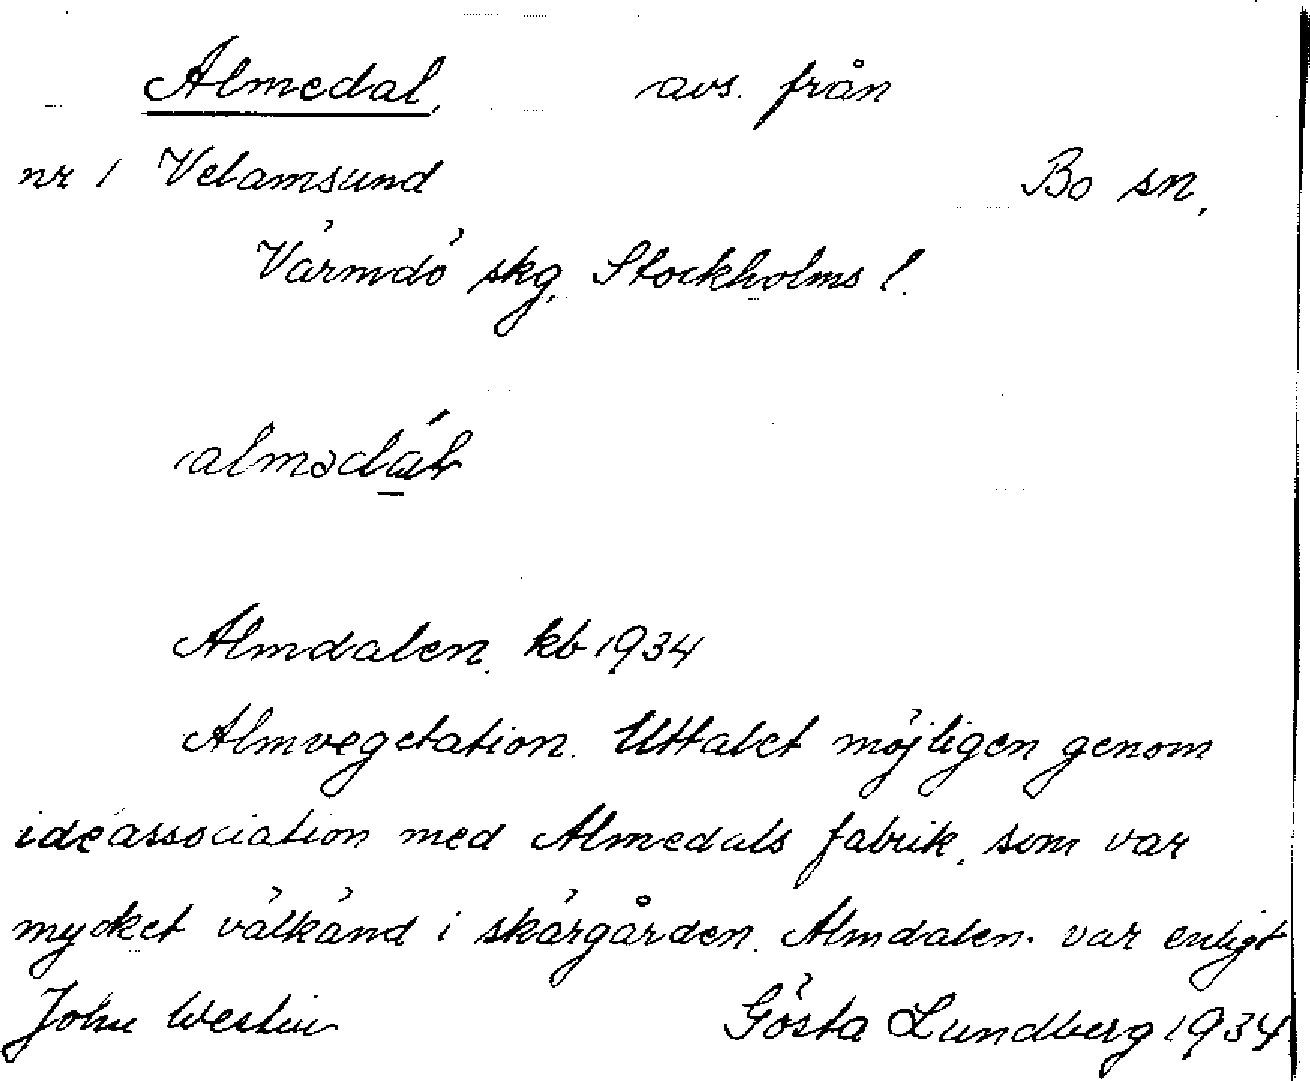 Almedal, avs. från
nr 1 Velamsund Bo sn,
Värmdö skg, Stockholms l.
almədάl
Almdalen. kb 1934
Almvegetation. Uttalet möjligen genom
idéassociation med Almedals fabrik, som var
mycket välkänd i skärgården. Almdalen var enligt
John Westin Gösta Lundberg 1934